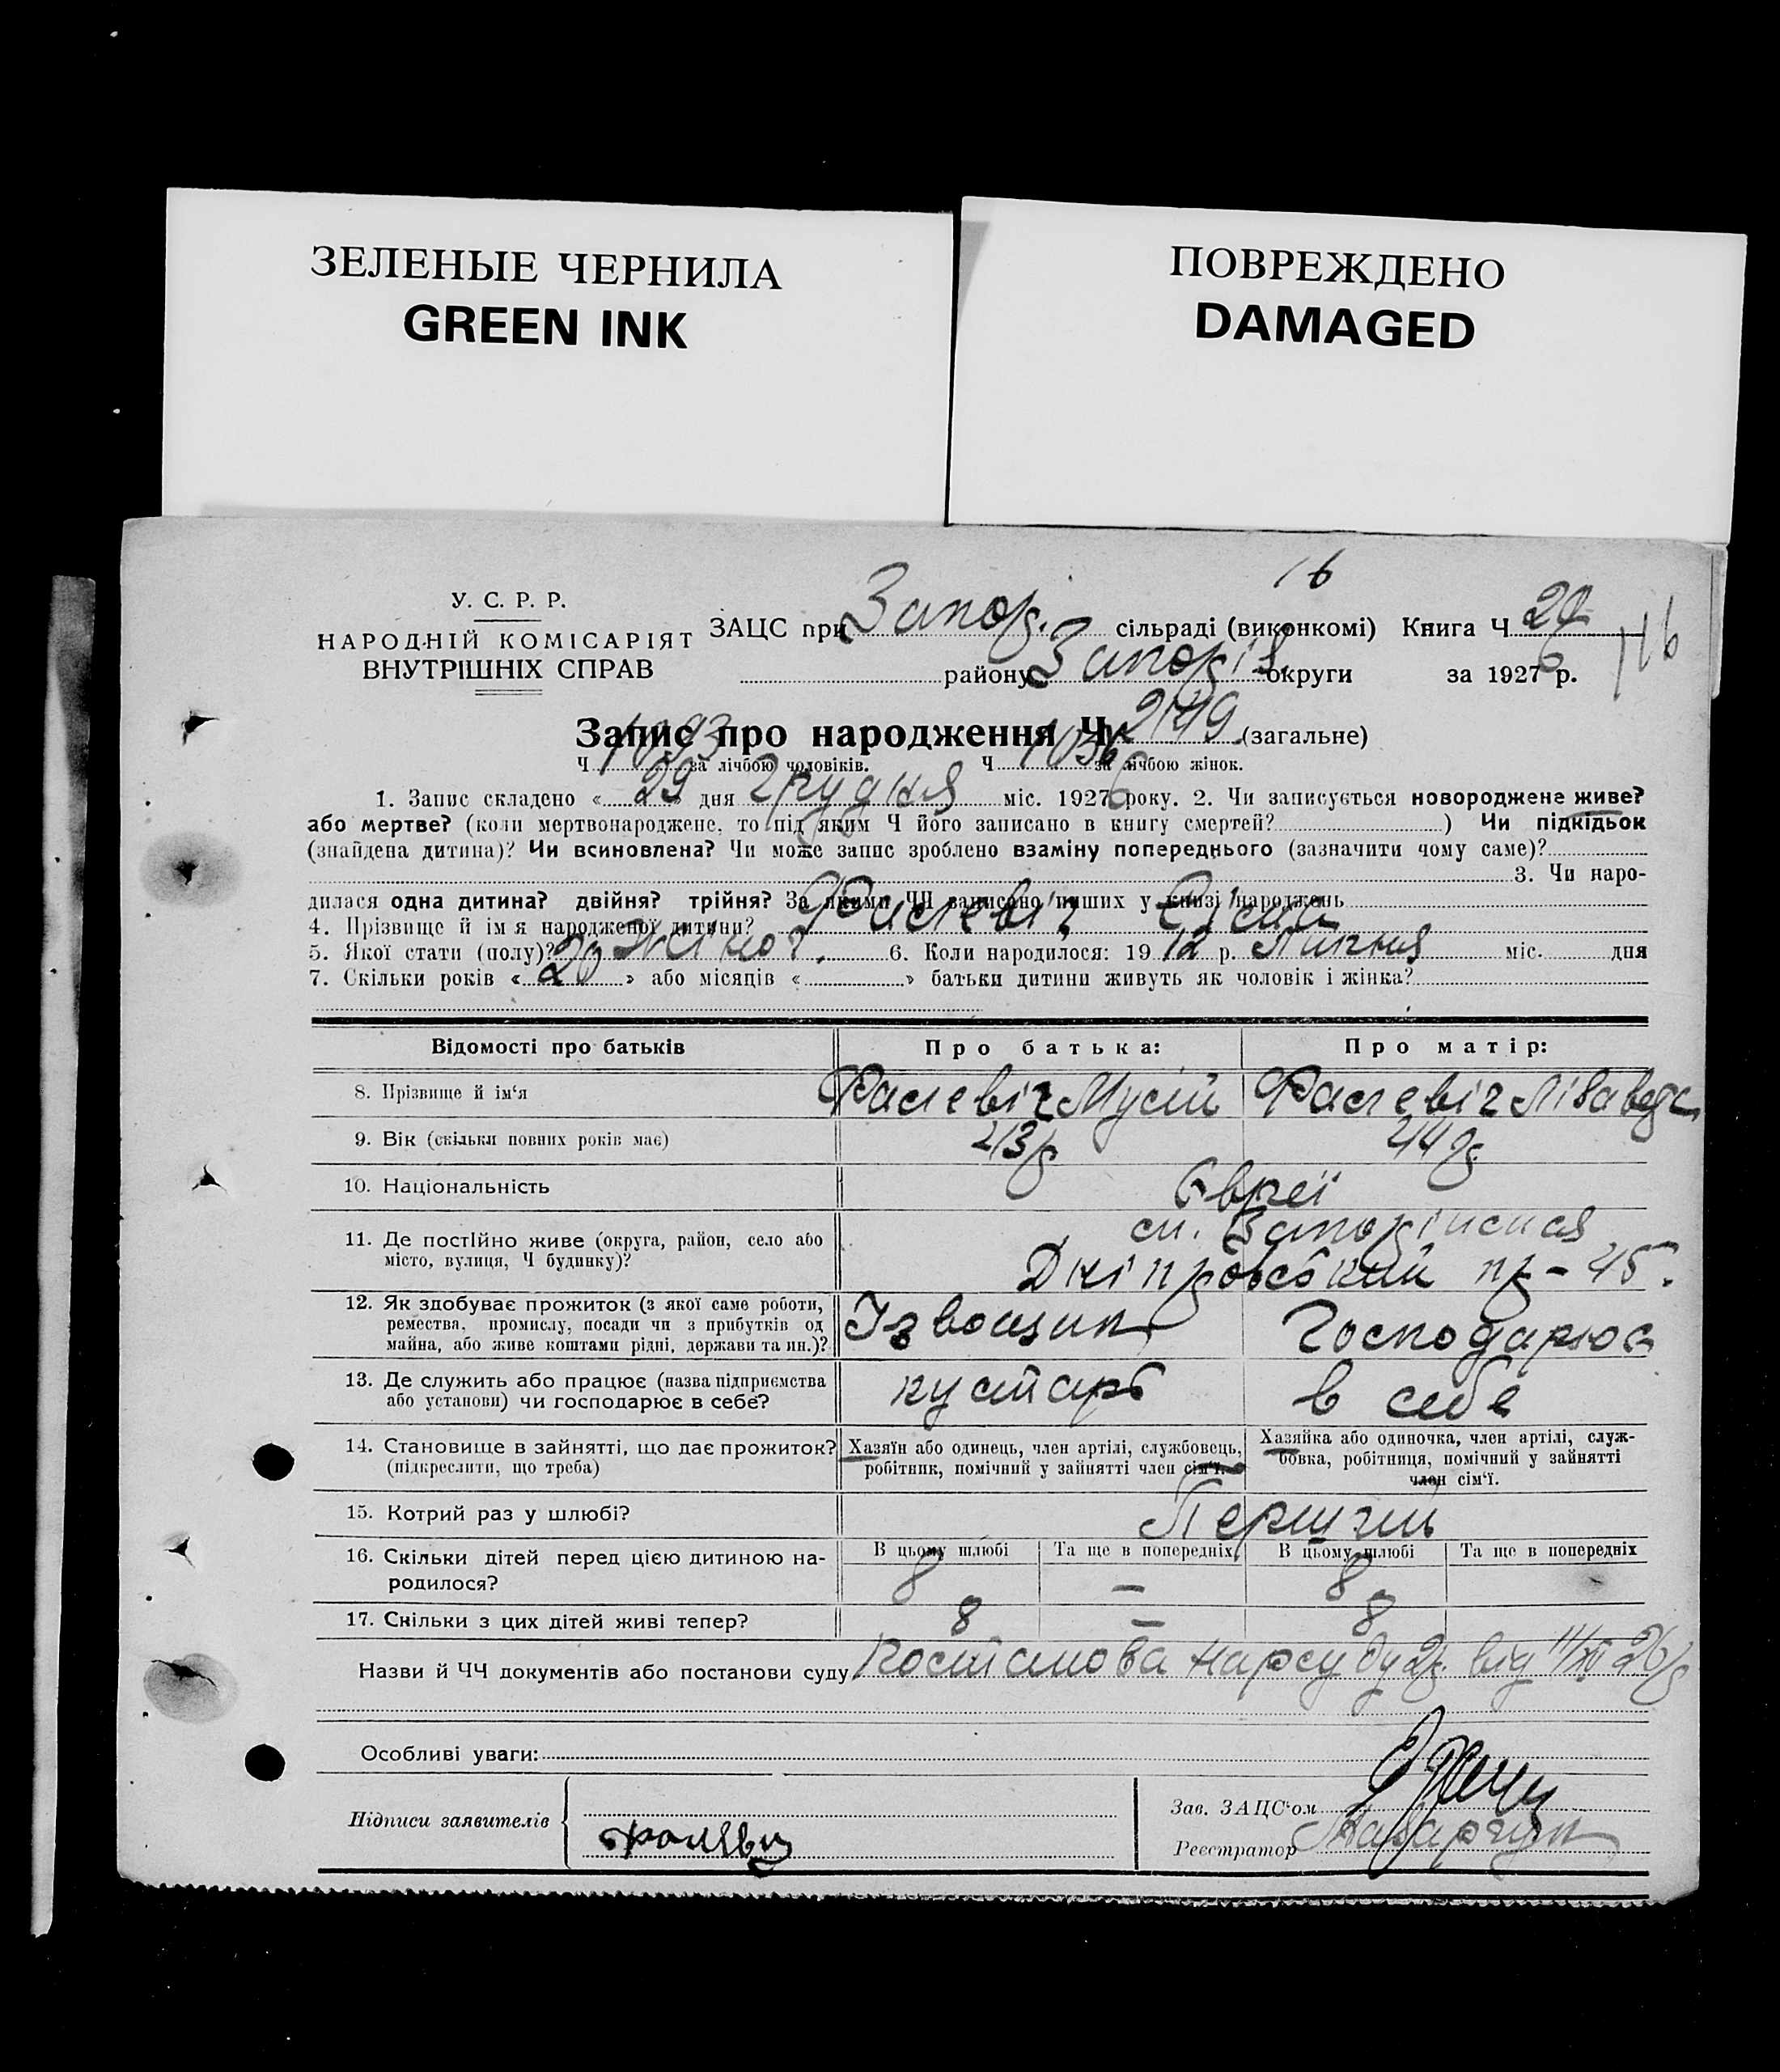 ЗЕЛЕНЫЕ ЧЕРНИЛА
GREEN INK
ПОВРЕЖДЕНО
DAMAGED
16
116
У. С. Р. Р.
НАРОДНІЙ КОМІСАРІЯТ
ВНУТРІШНІХ СПРАВ
ЗАЦС при Запор. сільраді (виконкомі) Книга Ч
району Запоріз. округи за 1927 6 р.
Запис про народження Ч 2149 (загальне)
Ч 1093 за лічбою чоловіків. Ч 1056 за лічбою жінок.
1. Запис складено « 29 » дня Грудня міс. 1927 6 року. 2. Чи записується новороджене живе?
або мертве? (коли мертвонароджене, то під яким Ч його записано в книгу смертей? ) Чи підкідьок
(знайдена дитина)? Чи всиновлена? Чи може запис зроблено взаміну попереднього (зазначити чому саме)?
3. Чи наро-
дилася одна дитина? двійня? трійня? За якими ЧЧ записано інших у книзі народжень
4. Прізвище й ім'я народженої дитини? Фалевіч
5. Якої стати (полу)? жіноч. 6. Коли народилося: 19 12 р. Липня міс. дня
7. Скільки років « 20 » або місяців « » батьки дитини живуть як чоловік і жінка?
Відомості про батьків
Про батька:
Про матір:
8. Прізвище й ім'я
Фалевіч Мусій
Фалевіч Лізавета
9. Вік (скільки повних років має)
43 р
44 р.
10. Національність
Євреї
11. Де постійно живе (округа, район, село або
місто, вулиця, Ч будинку)?
ст. Запоріжжя
Дніпровський пр - 45.
12. Як здобуває прожиток (з якої саме роботи,
ремества, промислу, посади чи з прибутків од
майна, або живе коштами рідні, держави та ин.)?
Ізвощик
Господарює
13. Де служить або працює (назва підприємства
або установи) чи господарює в себе?
кустарь
в себе
14. Становище в зайнятті, що дає прожиток?
(підкреслити, що треба)
Хазяїн або одинець, член артілі, службовець,
робітник, помічний у зайнятті член сім'ї.
Хазяйка або одиночка, член артілі, служ-
бовка, робітниця, помічний у зайнятті
член сім'ї.
15. Котрий раз у шлюбі?
Перший
16. Скільки дітей перед цією дитиною на-
родилося?
В цьому шлюбі
Та ще в попередніх
В цьому шлюбі
Та ще в попередніх
8 — 8
17. Скільки з цих дітей живі тепер?
8 — 8
Назви й ЧЧ документів або постанови суду Постанова Нарсуду 2 р. від 11/XI 26 р
Особливі уваги:
Підписи заявителів
Зав. ЗАЦС'ом
Реєстратор